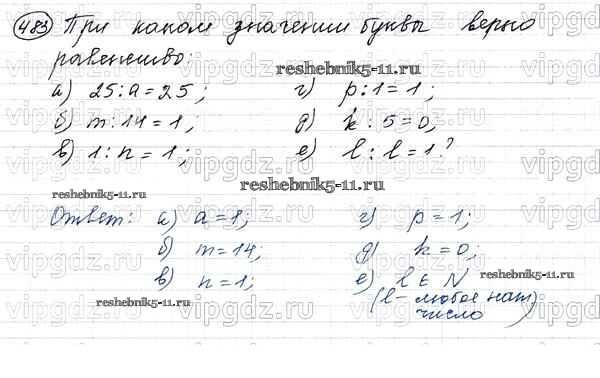 483 При каком значении буквы верно
равенство:
reshebnik5-11.ru
а) 25:a=25; г) p:1=1;
б) m:14=1; д) k:5=0,
в) 1:n=1; е) l:l=1?
reshebnik5-11.ru
reshebnik5-11.ru
Ответ: а) a=1; г) p=1;
б) m=14; д) k=0;
в) n=1; е) l∈N
reshebnik5-11.ru
(l-любое нат)
число
reshebnik5-11.ru
vipgdz.ru